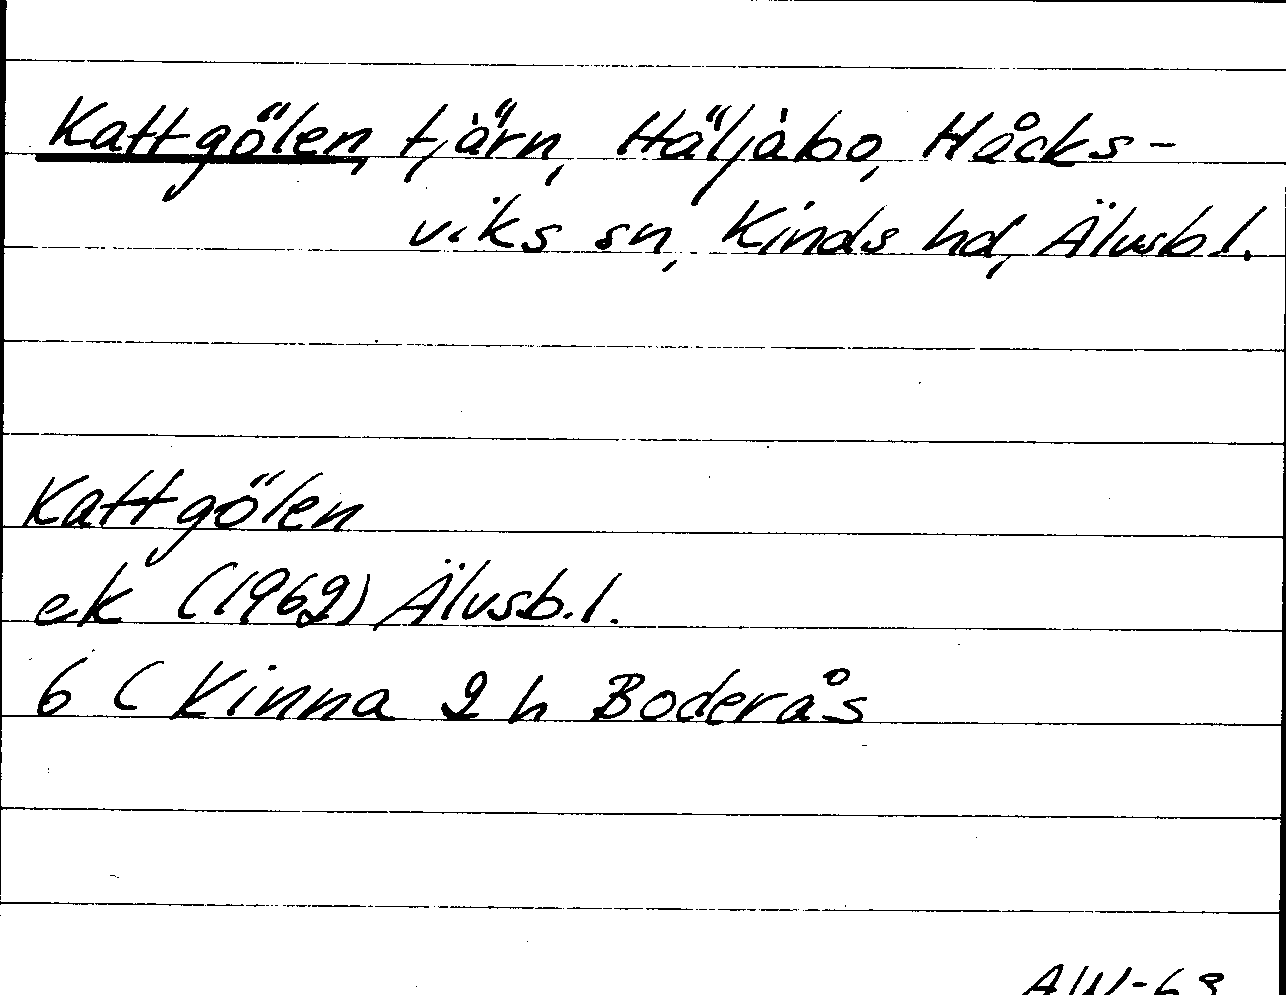 Kattgölen, tjärn, Häljabo, Håcks-
viks sn, Kinds hd, Älvsb l.
Kattgölen
ek (1962) Älvsb. l.
6 C Kinna 2 h Boderås